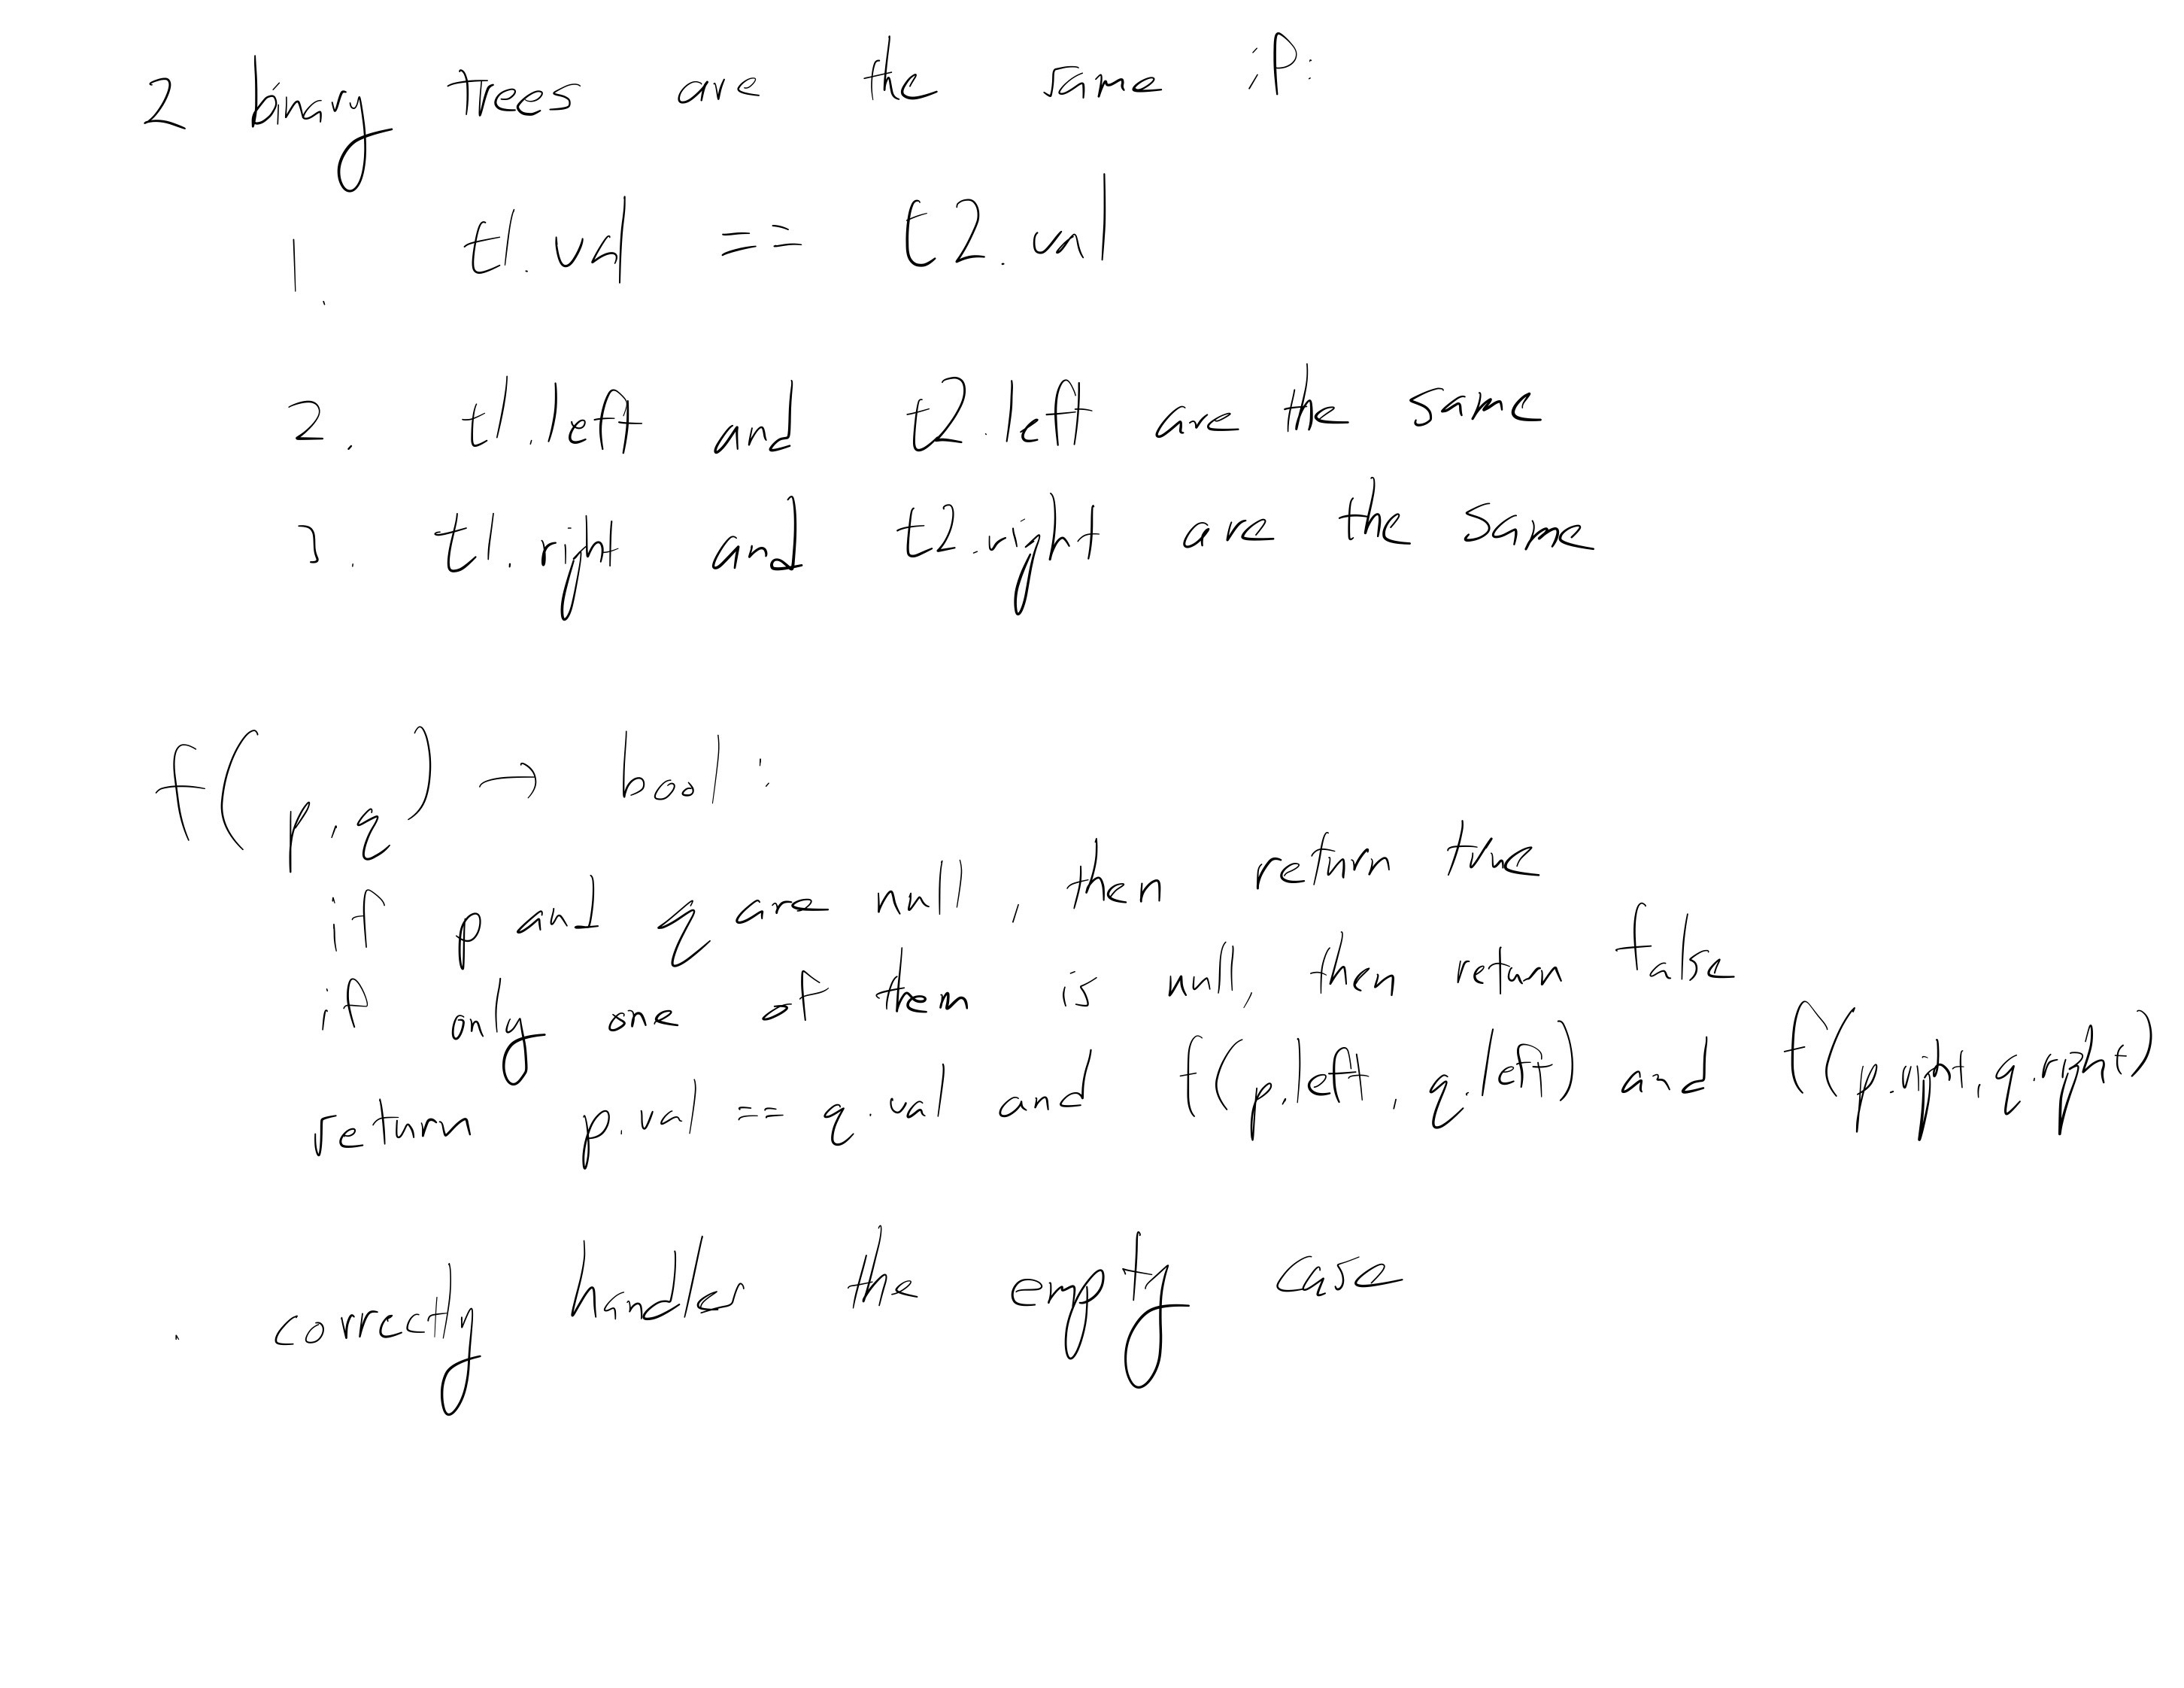 2 binary trees are the same if:
1. t1.val == t2.val
2. t1.left and t2.left are the same
3. t1.right and t2.right are the same
f(p, q) → bool:
if p and q are null, then return true
if only one of them is null, then return false
return p.val == q.val and f(p.left, q.left) and f(p.right, q.right)
. correctly handles the empty case